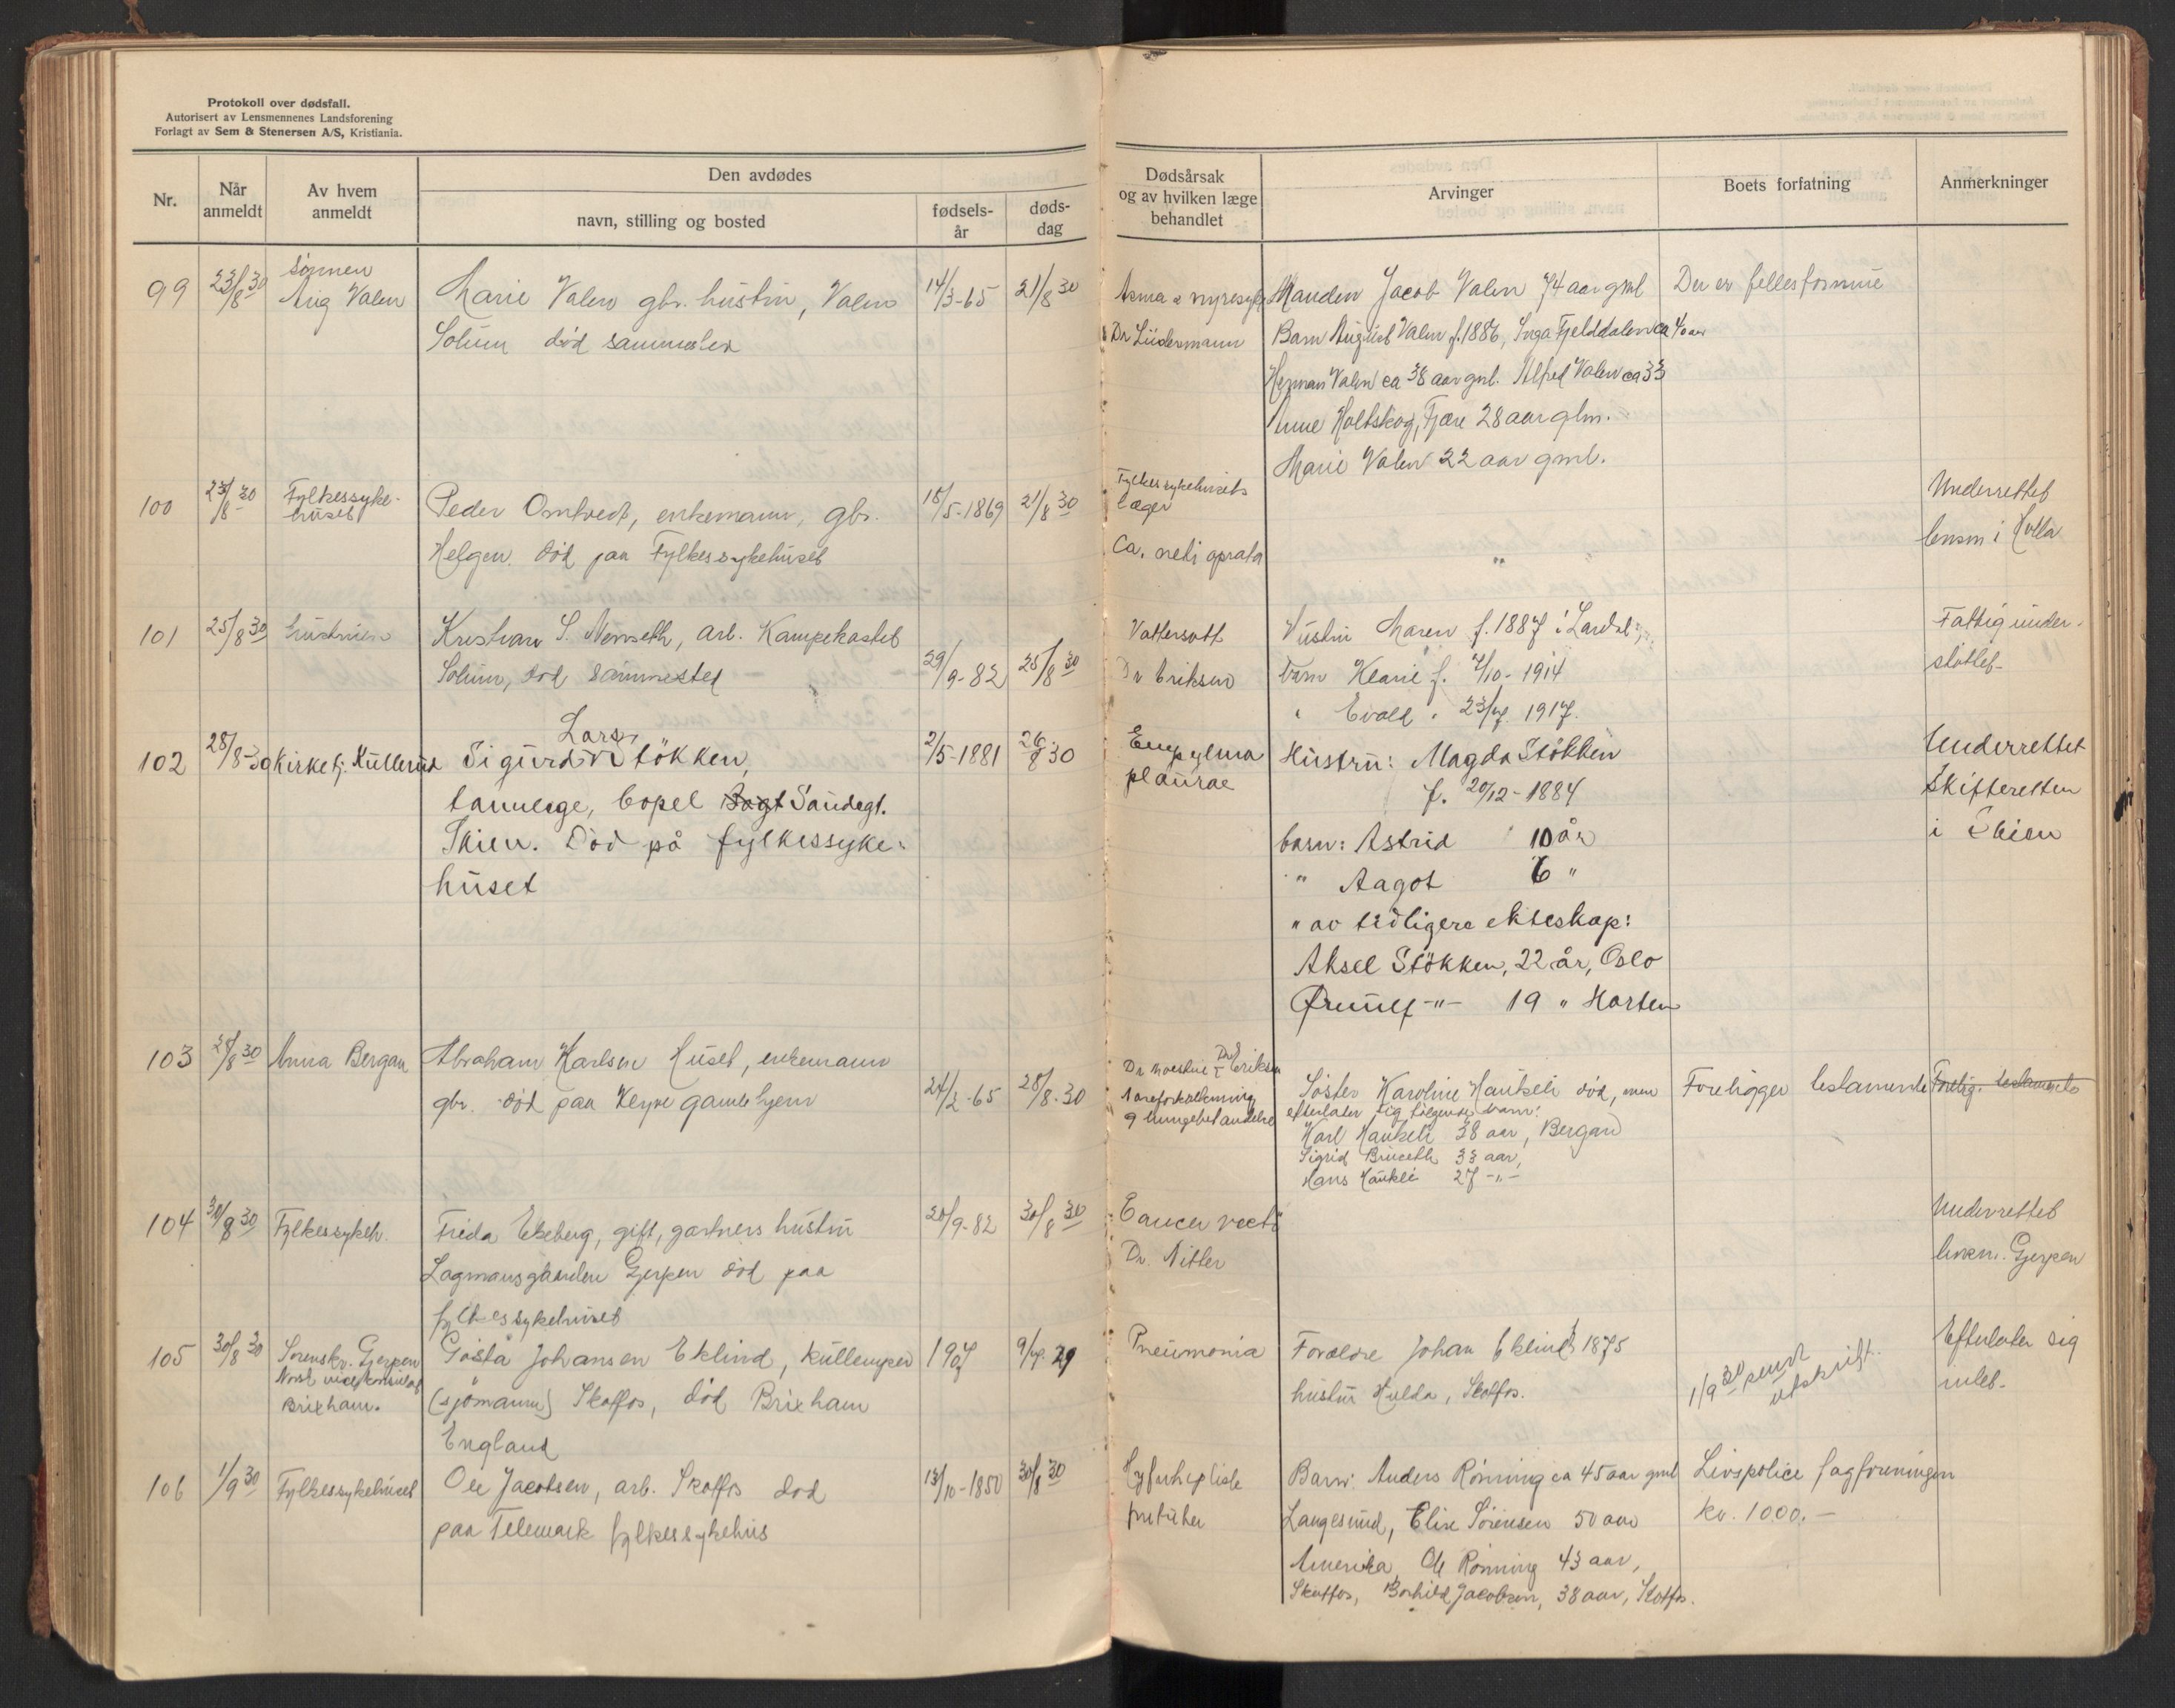 Protokoll over dødsfall.
Autorisert av Lensmennenes Landsforening
Forlagt av Sem & Stenersen A/S, Kristiania.
Nr.
Når anmeldt
Av hvem anmeldt
Den avdødes
navn, stilling og bosted
fødsels-år
døds-dag
Dødsårsak og av hvilken læge behandlet
Arvinger
Boets forfatning
Anmerkninger
99 23/8 30 Sønnen Aug Valen
Marie Valen gbr. hustru, Valen
Solum død sammested
14/3-65 21/8 30
Asma & nyresyke
Dr Lüdermann
Manden Jacob Valen 74 aar gml
Barn August Valen f. 1886, Inga Fjelddalen ca 40 aar
Herman Valen ca 38 aar gml. Alfred Valen ca 33
Anne Holtskog, Fjære 28 aar glm.
Marie Valen 22 aar gml.
Der er fellesformue
100 23/8 30 Fylkessyke-huset
Peder Omtvedt, enkemann, gbr.
Helgen. død paa Fylkessykehuset
15/5-1869 21/8 30
Fylkessykehusets
læger
Ca.
"
Underrettet
lensm i Holla
101 25/8 30 hustruen
Kristian S. Nenseth, arb. Kampekastet
Solum, død sammested
29/9-82 25/8 30
Vattersott
Dr Eriksen
Hustru Maren f. 1887 i
barn Klarie f. 4/10-1914
" Evald " 23/7 1917.
Fattigunder-
støttet-
102 28/8-30 Kirketj. Hullerud
Lars
Sigurd Støkken,
tannlege, bopel Sandegt.
Skien. Død på fylkessyke-
huset
2/5-1881 26/8 30
Empylma
plaurae
Hustru: Magda Støkken
f. 20/12-1884
barn: Astrid 10 år
" Aagot 6 "
" av tidligere ekteskap:
Aksel Støkken, 22 år, Oslo
Ørnulf -"- 19 " Horten
Underrettet
Skifteretten
i Skien
103 28/8 30 Anna Bergan
Abraham Karlsen Huset, enkemann
gbr. død paa Klyve gamlehjem
24/2-65 28/8-30
Dr Moestue Dr Eriksen
Aareforkalkning
Søster Karoline Haukeli død, men
efterlater sig følgende barn:
Karl Haukeli 38 aar, Bergan
Sigrid Bruseth 33 aar,
Hans Haukli 27 -"-
Foreligger testamente
Forelig. testamente
104 30/8 30 Fylkessykeh.
Frida Ekeberg, gift, gartners hustru
Lagmansgaarden Gjerpen død paa
fylkessykehuset
20/9-82 30/8 30
Cancer recti
Dr. Nitter
Underrettet
lensm. Gjerpen
105 30/8 30 Sorenskr. Gjerpen
Norsk vicekonsulat
Brixham.
Gøsta Johansen Eklind, kullemper
(sjømann) Skotfos, død Brixham
England
1907 9/7. 29
Pneumonia
Foreldre Johan Eklind f 1875
hustru Hulda, Skotfos.
1/9 30 sendt
utskrift.
Efterlater sig
intet.
106 1/9 30 Fylkessykehuset
Ole Jacobsen, arb. Skotfos død
paa Telemark fylkessykehus
13/10-1850 30/8 30
Barn: Anders Rønning ca 45 aar gml
Langesund, Elise Sørensen 50 aar
Amerika, Ole Rønning 43 aar,
Skotfos, Borhild Jacobsen, 38 aar, Skotfos.
Livspolice fagforeningen
kr. 1000.-